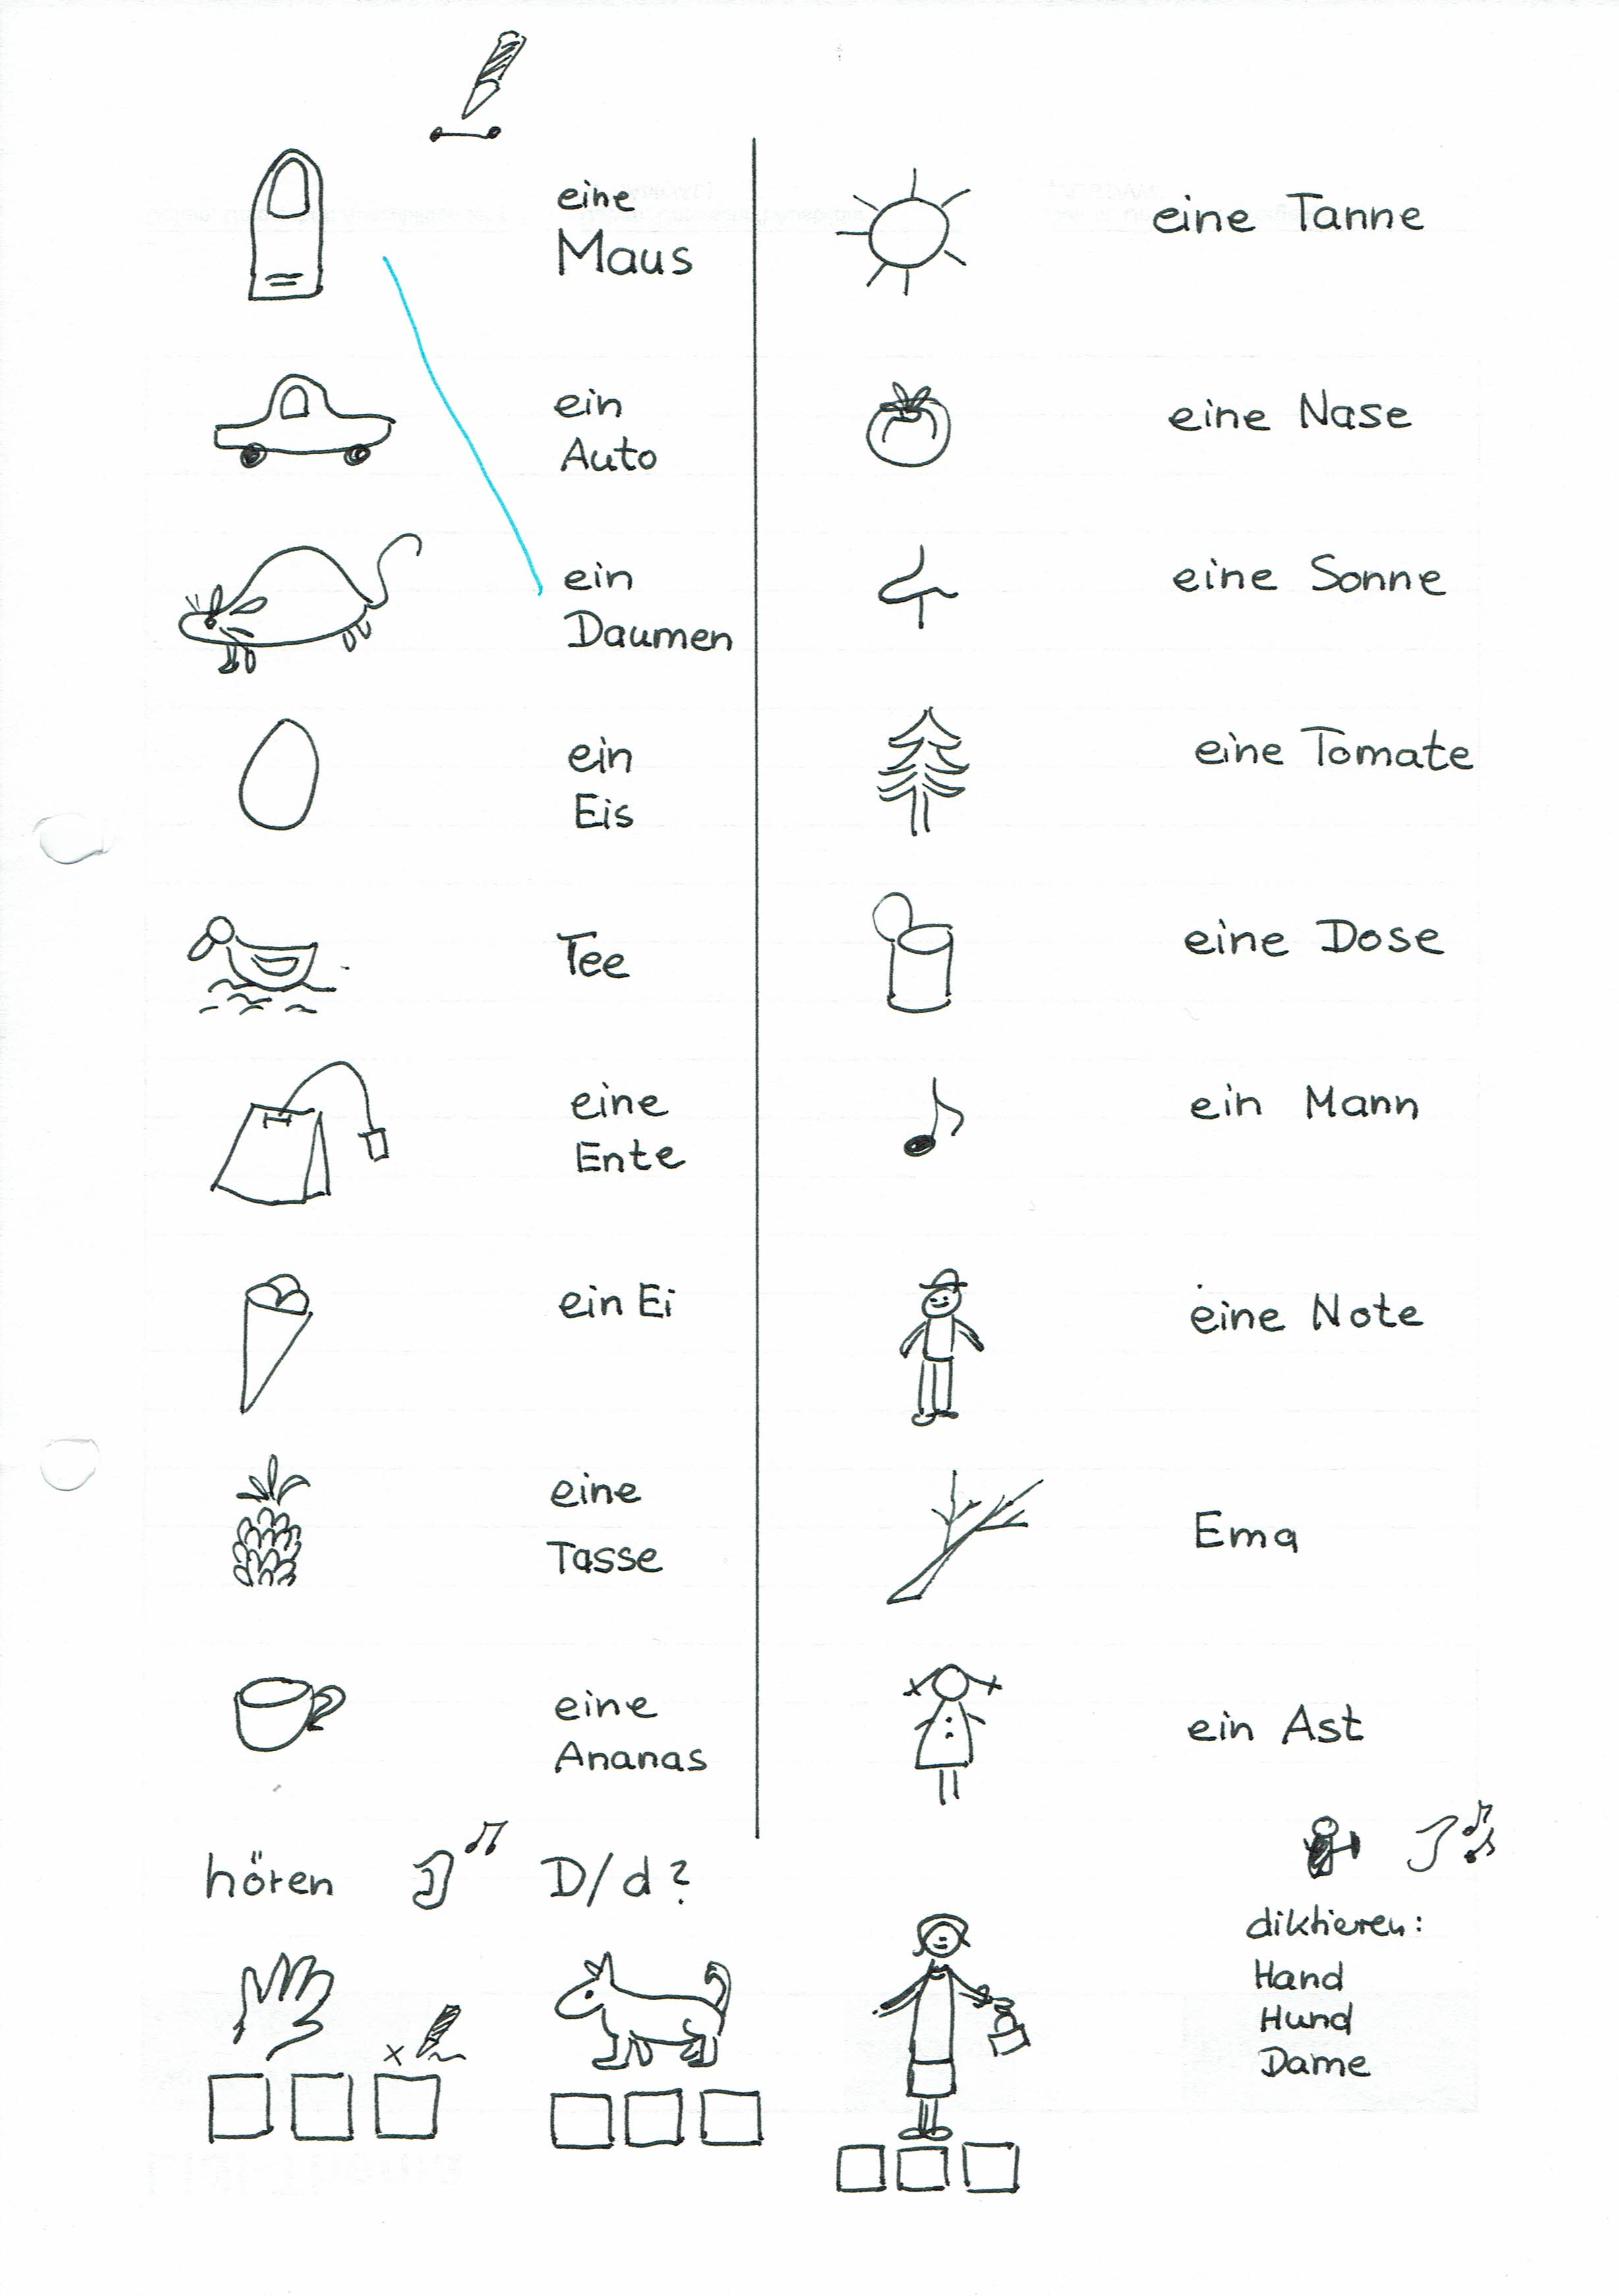 eine
Maus
ein
Auto
ein
Daumen
ein
Eis
Tee
eine
Ente
ein Ei
eine
Tasse
eine
Ananas
eine Tanne
eine Nase
eine Sonne
eine Tomate
eine Dose
ein Mann
eine Note
Ema
ein Ast
hören D/d?
diktieren:
Hand
Hund
Dame